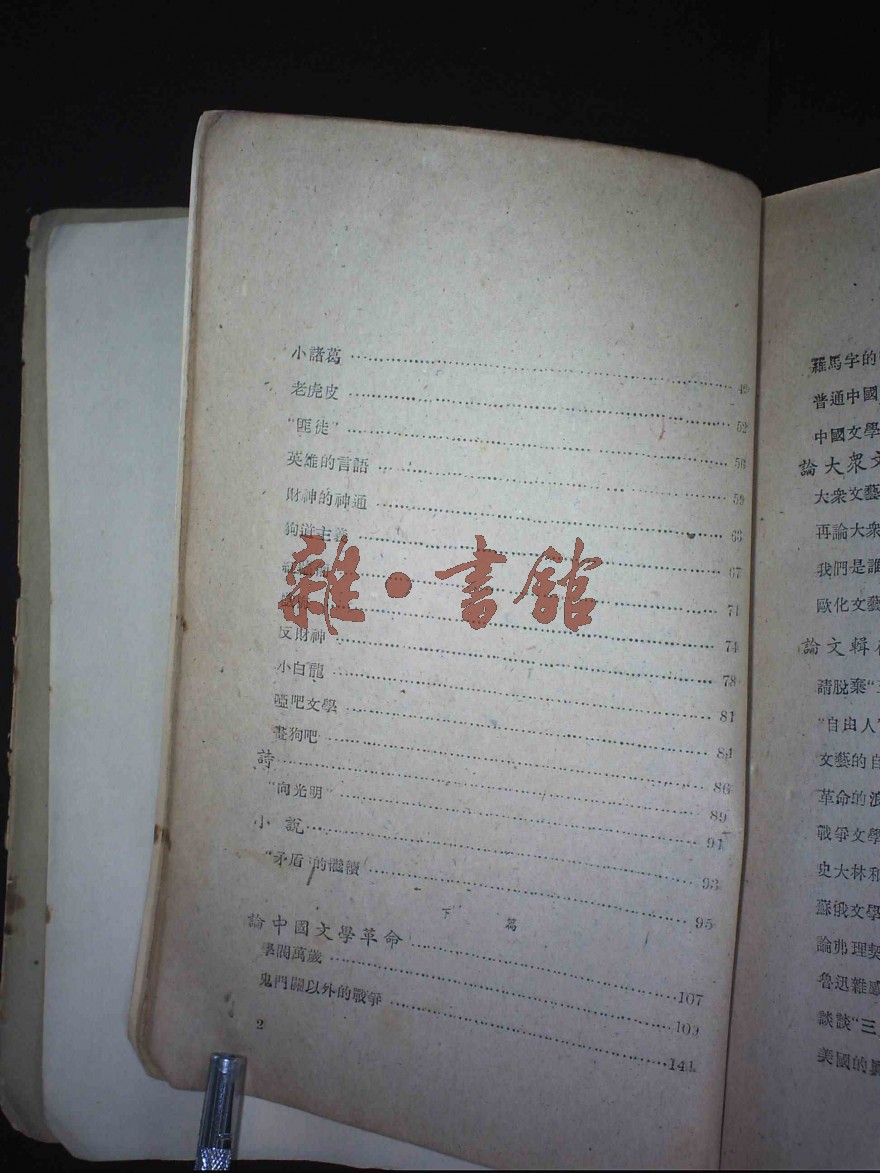 小諸葛……49
老虎皮……52
"匪徒"……56
英雄的言語……59
財神的神通……63
狗道主義……67
……71
……74
反財神……78
小白龍……81
啞吧文學……84
畫狗吧……86
詩……89
"向光明"……91
小 說……93
"矛盾"的繼續……95
下 篇
論中國文學革命……107
學閥萬歲……109
鬼門關以外的戰爭……141
2
雜·書館
羅馬字的
普通中國
中國文學
論大衆文
大衆文藝
再論大衆
我們是誰
歐化文藝
論文輯
請脫棄"
"自由人"
文藝的自
革命的浪
戰爭文學
史大林和
蘇俄文學
論弗理契
魯迅雜感
談談"三
美國的